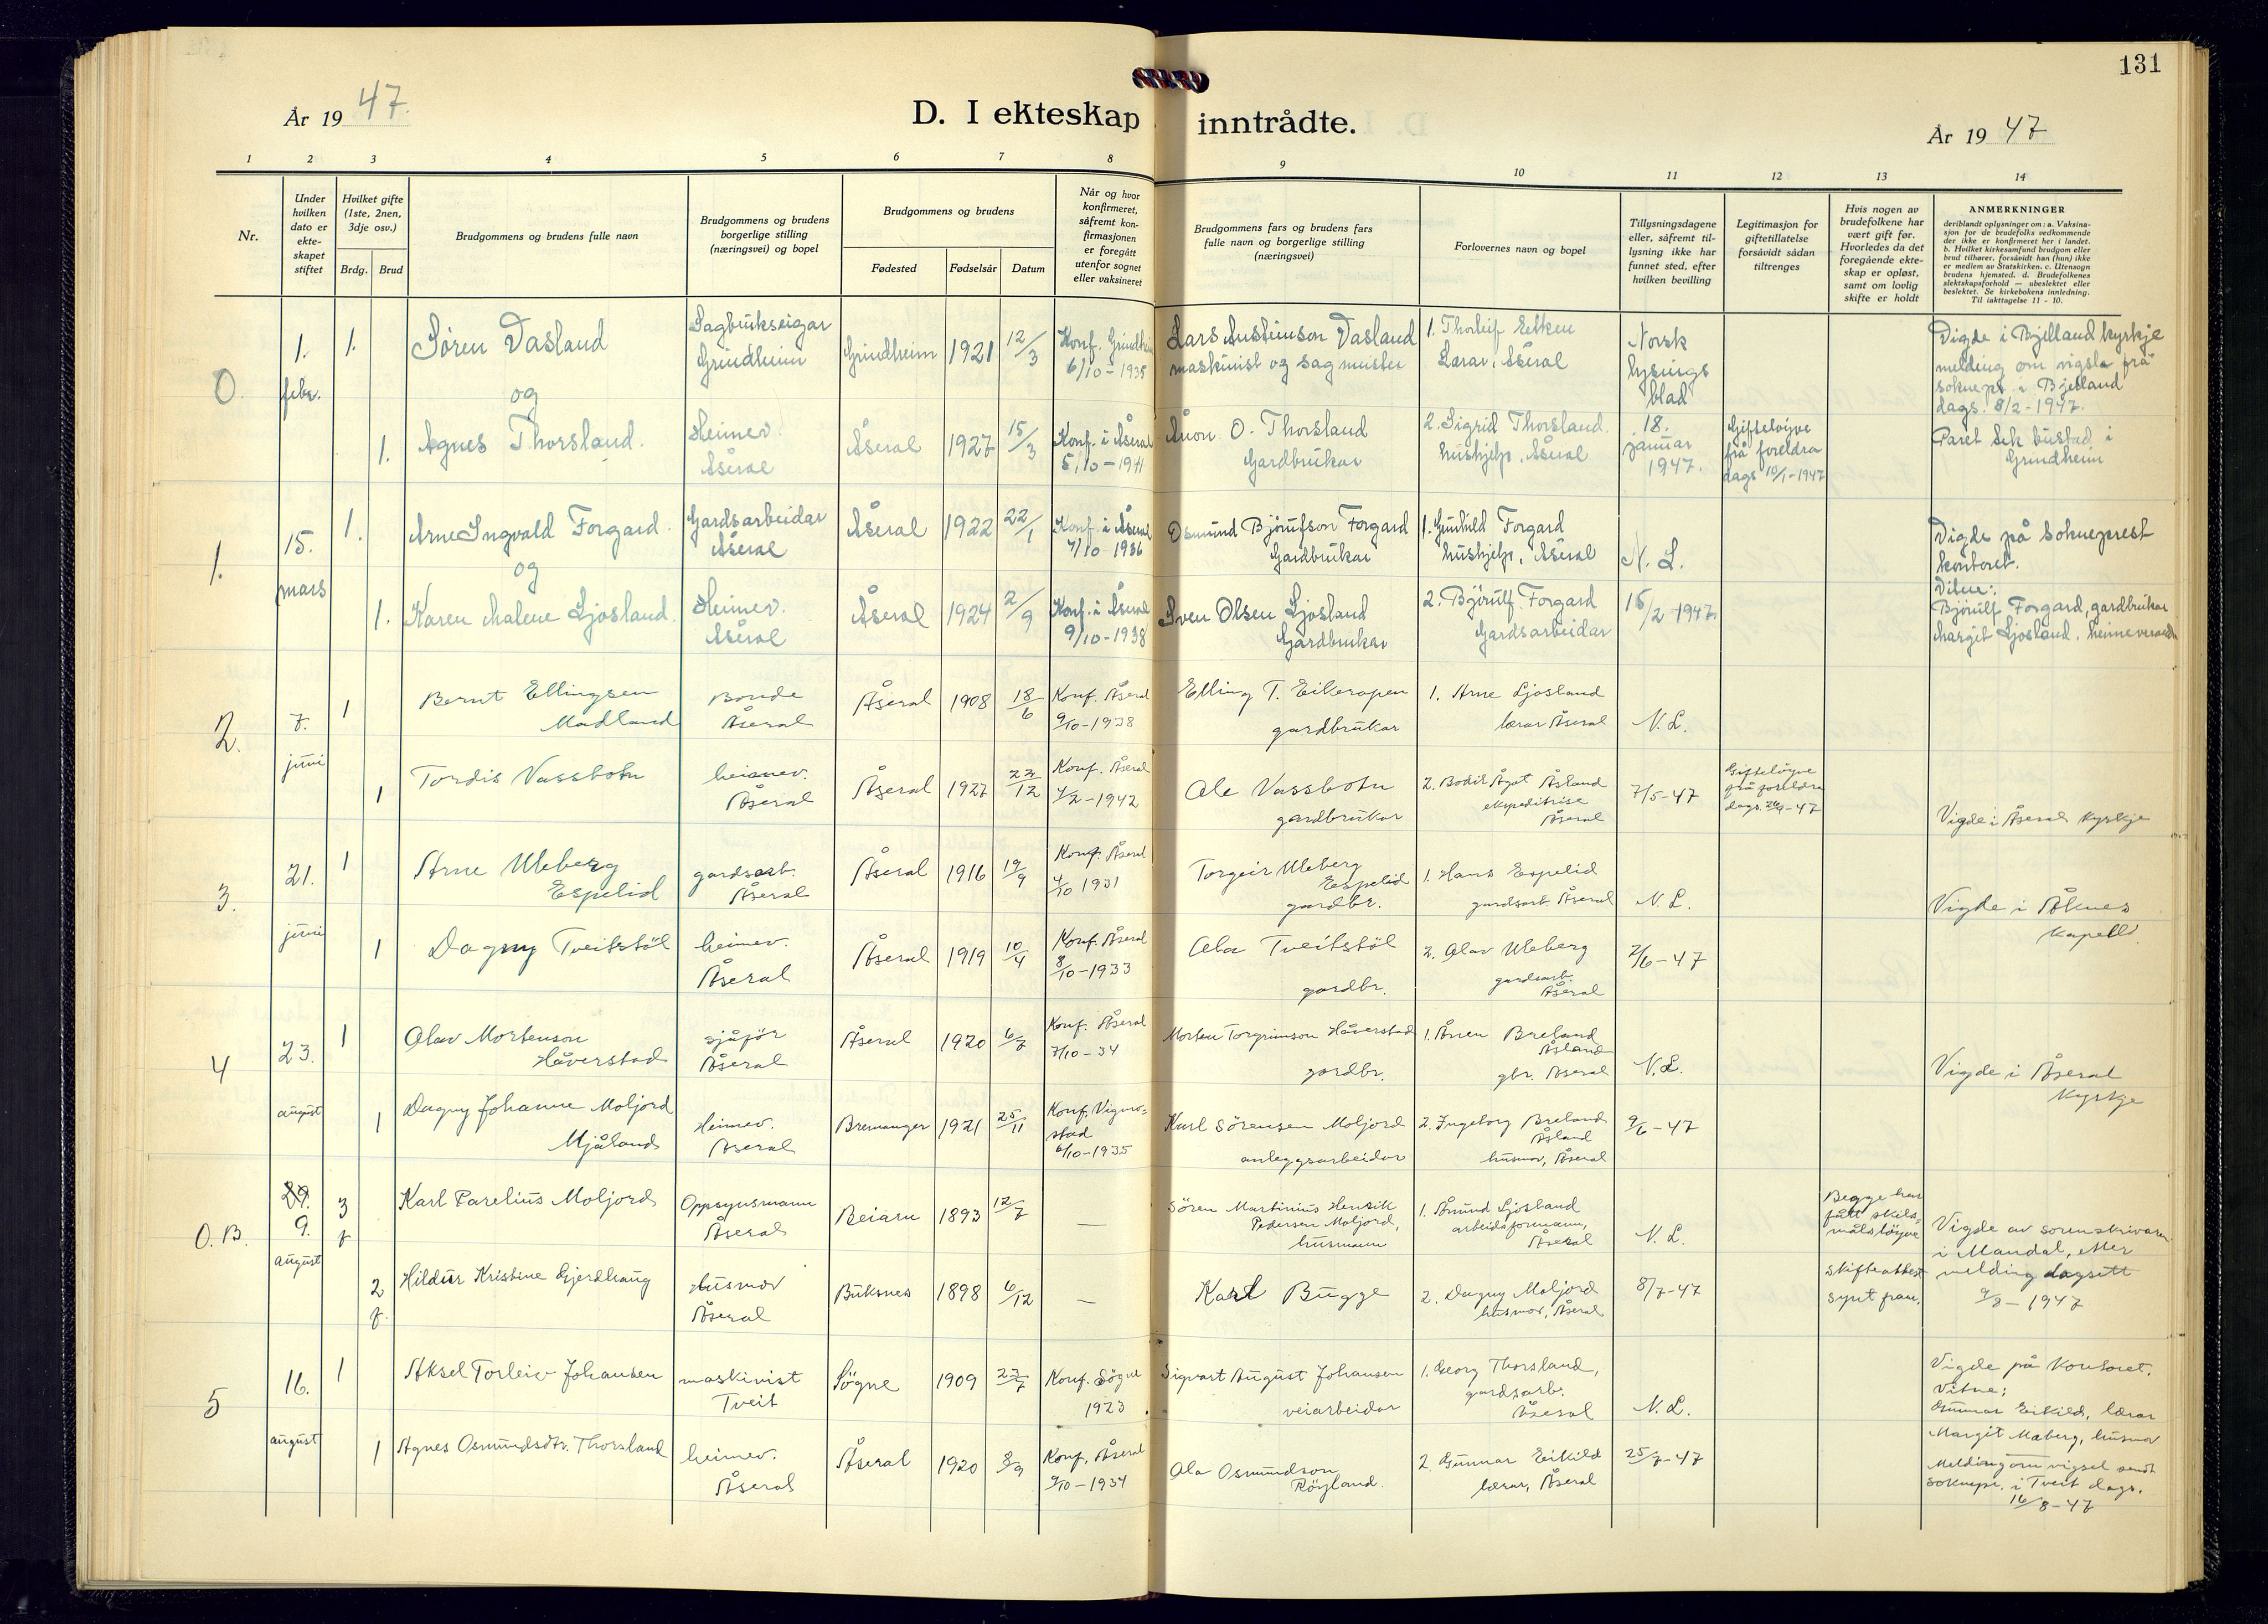 131
År 19 47.
D. I ekteskap inntrådte.
År 19 47
1 2 3 4 5 6 7 8 9 10 11 12 13 14
Nr.
Under
hvilken
dato er
ekte-
skapet
stiftet
Hvilket gifte
(1ste, 2nen,
3dje osv.)
Brdg. Brud
Brudgommens og brudens fulle navn
Brudgommens og brudens
borgerlige stilling
(næringsvei) og bopel
Brudgommens og brudens
Fødested Fødselsår Datum
Når og hvor
konfirmeret,
såfremt kon-
firmasjonen
er foregått
utenfor sognet
eller vaksineret
Brudgommens fars og brudens fars
fulle navn og borgerlige stilling
(næringsvei)
Forlovernes navn og bopel
Tillysningsdagene
eller, såfremt til-
lysning ikke har
funnet sted, efter
hvilken bevilling
Legitimasjon for
giftetillatelse
forsåvidt sådan
tiltrenges
Hvis nogen av
brudefolkene har
vært gift før.
Hvorledes da det
foregående ekte-
skap er opløst,
samt om lovlig
skifte er holdt
ANMERKNINGER
deriblandt oplysninger om: a. Vaksina-
sjon for de brudefolks vedkommende
der ikke er konfirmeret her i landet.
b. Hvilket kirkesamfund brudgom eller
brud tilhører, forsåvidt han (hun) ikke
er medlem av Statskirken. c. Utensogn
brudens hjemsted. d. Brudefolkenes
slektskapsforhold — ubeslektet eller
beslektet. Se kirkebokens innledning.
Til iakttagelse 11 - 10.
0.
1.
febr.
1.
Søren Vasland
og
Sagbrukseigar
Grindheim
Grindheim
1921
12/3
Konf. Grindheim
6/10 - 1935
Lars Austinson Vasland
maskinist og sagmeister
1. Thorleif Eikken
Lærar, Åseral
Norsk
lysings
blad
Vigde i Bjelland kyrkje
melding om vigsla frå
soknepr. i Bjelland
dags. 8/2 - 1947.
1.
Agnes Thorsland.
Heimev.
Åseral
Åseral
1927
15/3
Konf. i Åseral
5/10 - 1941
Ånon O. Thorsland
Gardbrukar
2. Sigrid Thorsland.
hushjelp, Åseral
18.
januar
1947.
Gifteløyve
frå foreldra
dags 10/1-1947
Paret fek bustad i
Grindheim
1.
15.
mars
1.
Arne Ingvald Forgard.
og
Gardsarbeidar
Åseral
Åseral
1922
22/1
Konf. i Åseral
4/10 - 1936
Osmund Bjørulfson Forgard
Gardbrukar
1. Gunhild Forgard
hushjelp, Åseral
N. L.
Vigde på Sokneprest
kontoret.
Vitne:
Bjørulf Forgard, gardbrukar
Margit Ljosland, heimeverande
1.
Karen Malene Ljosland.
Heimev.
Åseral
Åseral
1924
2/9
Konf. i Åseral
9/10 - 1938
Sven Olsen Ljosland
Gardbrukar
2. Bjørulf Forgard
Gardsarbeidar
15/2 - 1947
2.
7.
juni
1
Bernt Ellingsen
Madland
Bonde
Åseral
Åseral
1908
18/6
Konf. Åseral
9/10 - 1938
Elling T. Eikerapen
gardbrukar
1. Arne Ljosland
lærar Åseral
N. L.
1
Tordis Vassbotn
heimev.
Åseral
Åseral
1927
Konf. Åseral
- 1942
Ole Vassbotn
gardbrukar
2. Bodil Ågot Åsland
ekspeditrise
Åseral
7/5 - 47
Gifteløyve
frå foreldra
dags. - 47
Vigde i Åseral Kyrkje
3.
21.
juni
1
Arne Uleberg
Espelid
gardsarb.
Åseral
Åseral
1916
19/9
Konf. Åseral
4/10 1931
Torgeir Uleberg
Espelid
gardbr.
1. Hans Espelid
gardsarb. Åseral
N. L.
Vigde i Åknes
Kapell.
1
Dagny Tveitstöl
heimev.
Åseral
Åseral
1919
10/4
Konf. Åseral
8/10 - 1933
Ola Tveitstöl
gardbr.
2. Olav Uleberg
gardsarb.
Åseral
2/6 - 47
4
23.
august
1
Olav Mortenson
Håverstad
sjåför
Åseral
Åseral
1920
Konf. Åseral
7/10 - 34
Morten Torgrimson Håverstad
gardbr.
1. Ånen Breland
Åsland
gbr. Åseral
N. L.
Vigde i Åseral
Kyrkje
1
Dagny Johanne Moljord
Mjåland
Heimev.
Åseral
Bremanger
1921
25/11
Konf. Vigmo-
stad
6/10 - 1935
Karl Sörensen Moljord
anleggsarbeidar
2. Ingeborg Breland
Åsland
husmor, Åseral
9/6 - 47
0. B.
29.
9.
august
3
f
Karl Parelius Moljord
Oppsynsmann
Åseral
Beiarn
1893
12/7
—
Sören Martinius Henrik
Pedersen Moljord,
husmann
1. Åmund Ljosland
arbeidsformann,
Åseral
N. L.
Begge har
fått skils-
målsløyve
Vigde av sorenskrivaren
i Mandal, etter
melding dagsett
9/8 - 1947
2
f.
Hildur Kristine Gjerdhaug
Husmor
Åseral
Buksnes
1898
6/12
—
Karl Bugge
2. Dagny Moljord
husmor, Åseral
8/7 - 47
Skifteattest
synt fram.
5
16.
august
1
Aksel Torleiv Johansen
maskinist
Tveit
Søgne
1909
22/7
Konf. Søgne
1923
Sigvart August Johansen
veiarbeidar
1. Georg Thorsland,
gardsarb.
Åseral
N. L.
Vigde på Kontoret.
Vitne:
Gunnar Eikild, lærar
Margit Møberg, husmor
1
Agnes Osmundsdtr. Thorsland
heimev.
Åseral
Åseral
1920
8/9
Konf. Åseral
9/10 - 1934
Ola Osmundson
Röyland.
2. Gunnar Eikild
lærar, Åseral
25/7 - 47
Melding om vigsel sendt
soknepr. i Tveit dags.
16/8 - 47